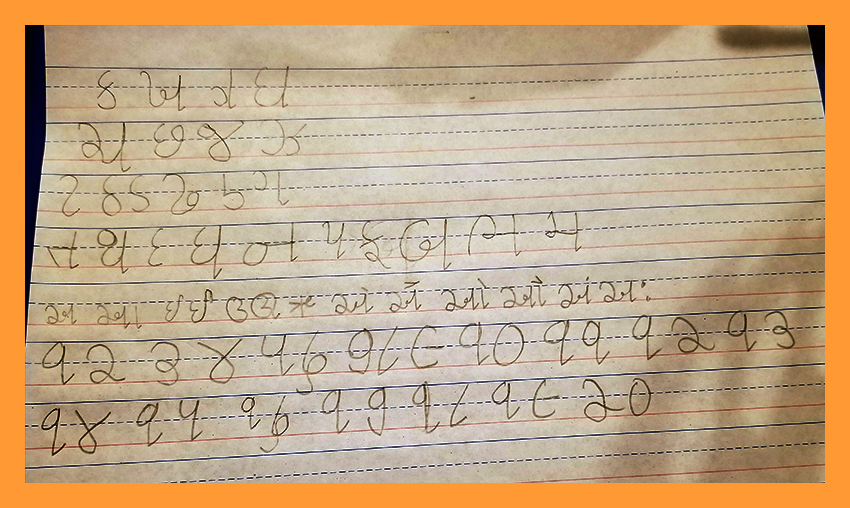 ક ખ ગ ઘ
ચ છ જ ઝ
ટ ઠ ડ ઢ ણ
ત થ દ ધ ન પ ફ બ ભ મ
અ આ ઇ ઈ ઉ ઊ ઋ એ ઐ ઓ ઔ અં અઃ
૧ ૨ ૩ ૪ ૫ ૬ ૭ ૮ ૯ ૧૦ ૧૧ ૧૨ ૧૩
૧૪ ૧૫ ૧૬ ૧૭ ૧૮ ૧૯ ૨૦